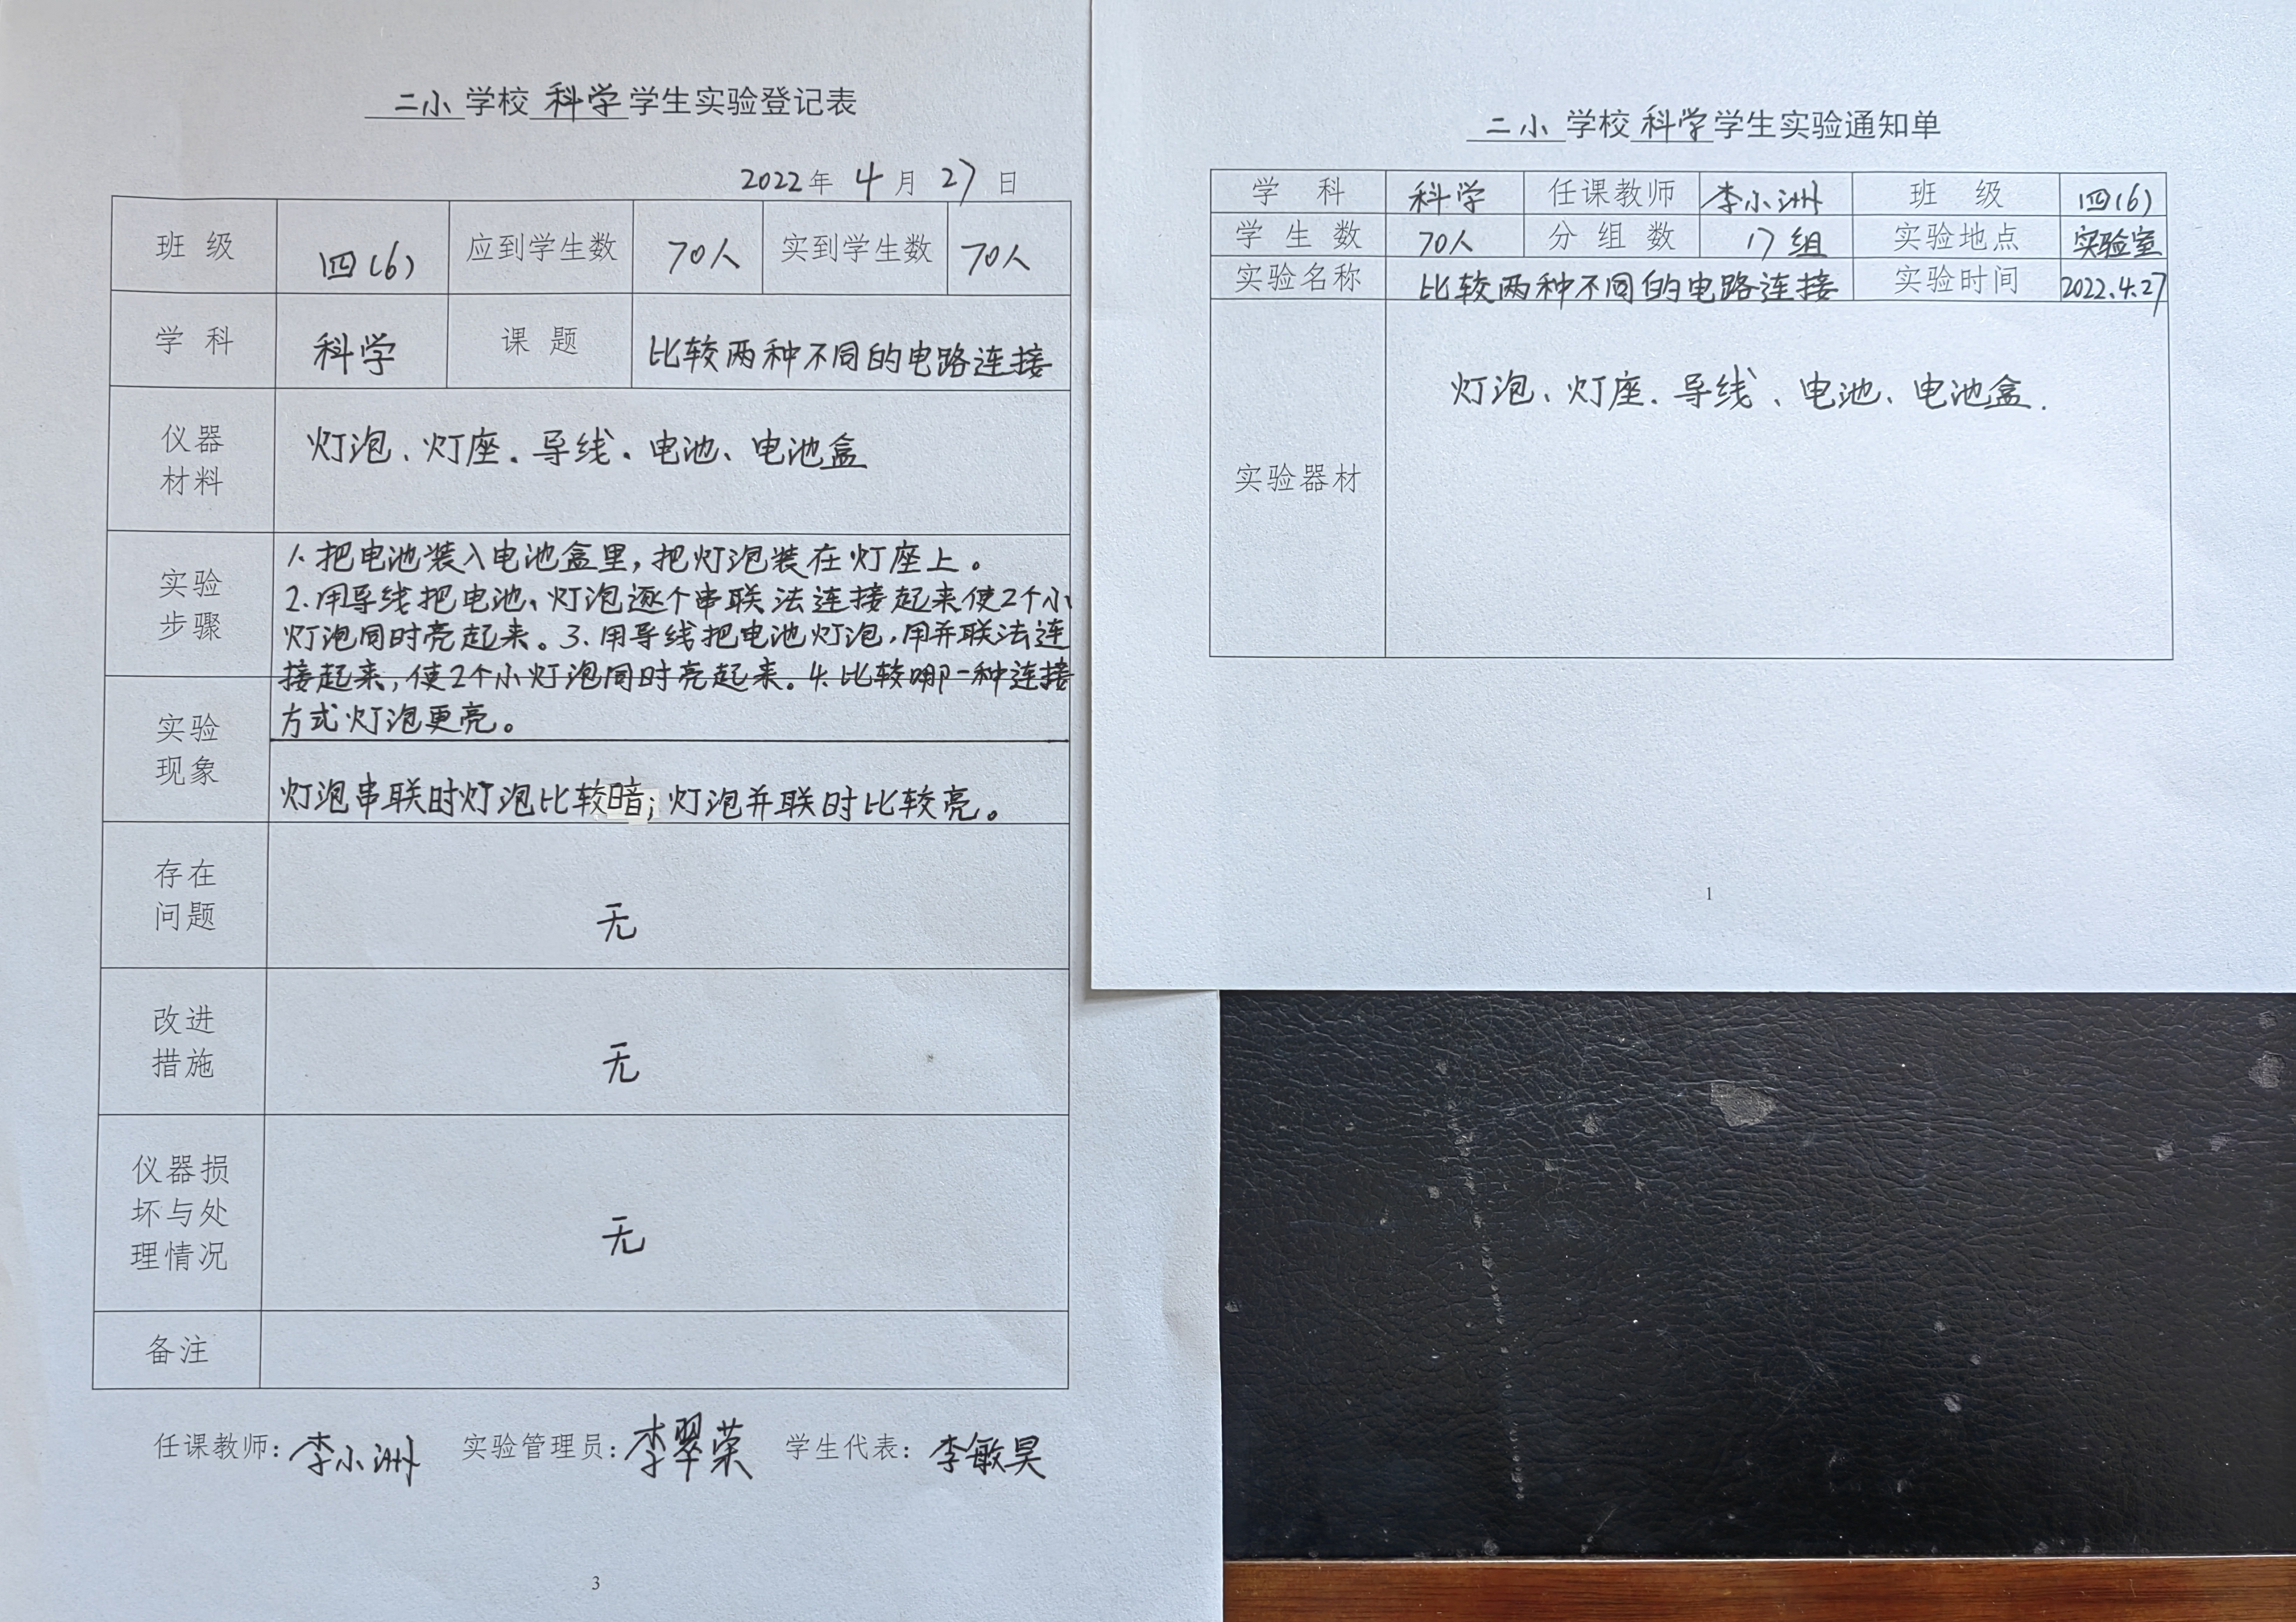 二小学校科学学生实验登记表
2022年 4月 27日
班级 四(6) 应到学生数 70人 实到学生数 70人
学科 科学 课题 比较两种不同的电路连接
仪器材料 灯泡、灯座、导线、电池、电池盒
实验步骤
1.把电池装入电池盒里，把灯泡装在灯座上。
2.用导线把电池、灯泡逐个串联法连接起来使2个小
灯泡同时亮起来。3.用导线把电池灯泡，用并联法连
接起来，使2个小灯泡同时亮起来。4.比较哪一种连接
方式灯泡更亮。
实验现象
灯泡串联时灯泡比较暗；灯泡并联时比较亮。
存在问题 无
改进措施 无
仪器损坏与处理情况 无
备注
任课教师：李小洲 实验管理员：李翠荣 学生代表：李敏昊
3
二小学校科学学生实验通知单
学科 科学 任课教师 李小洲 班级 四(6)
学生数 70人 分组数 17组 实验地点 实验室
实验名称 比较两种不同的电路连接 实验时间 2022.4.27
实验器材 灯泡、灯座、导线、电池、电池盒.
1